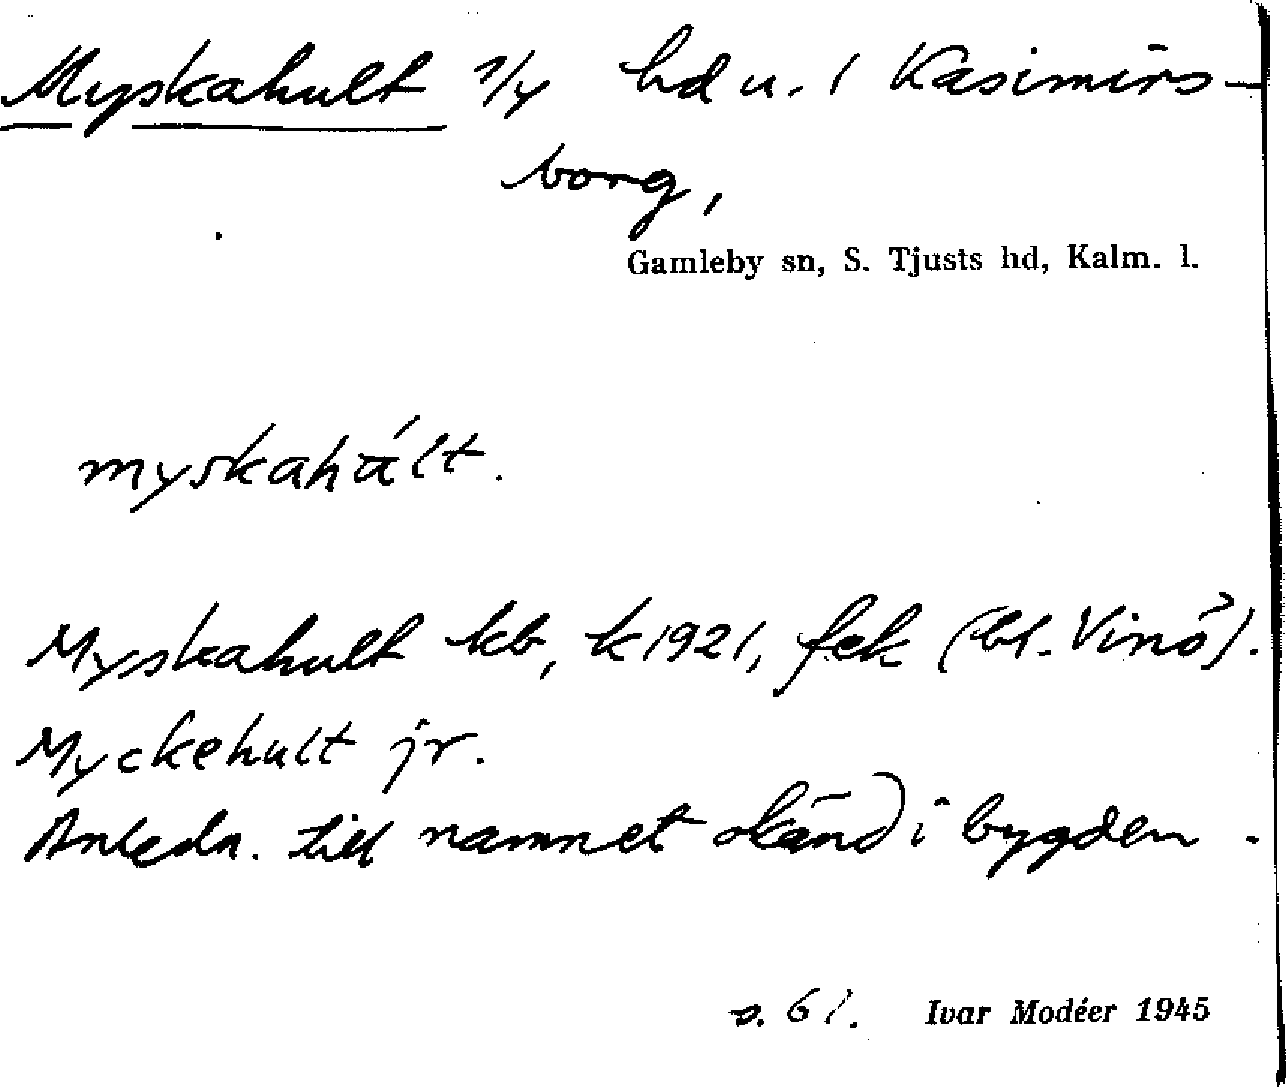 Myskahult 1/4 hd u. l Kasimirs-
borg,
Gamleby sn, S. Tjusts hd, Kalm. l.
myskahált.
Myskahult kb, k 1921, fek (bl. Vinö).
Myckehult jr.
Anledn. till namnet okänd i bygden.
s. 61. Ivar Modéer 1945